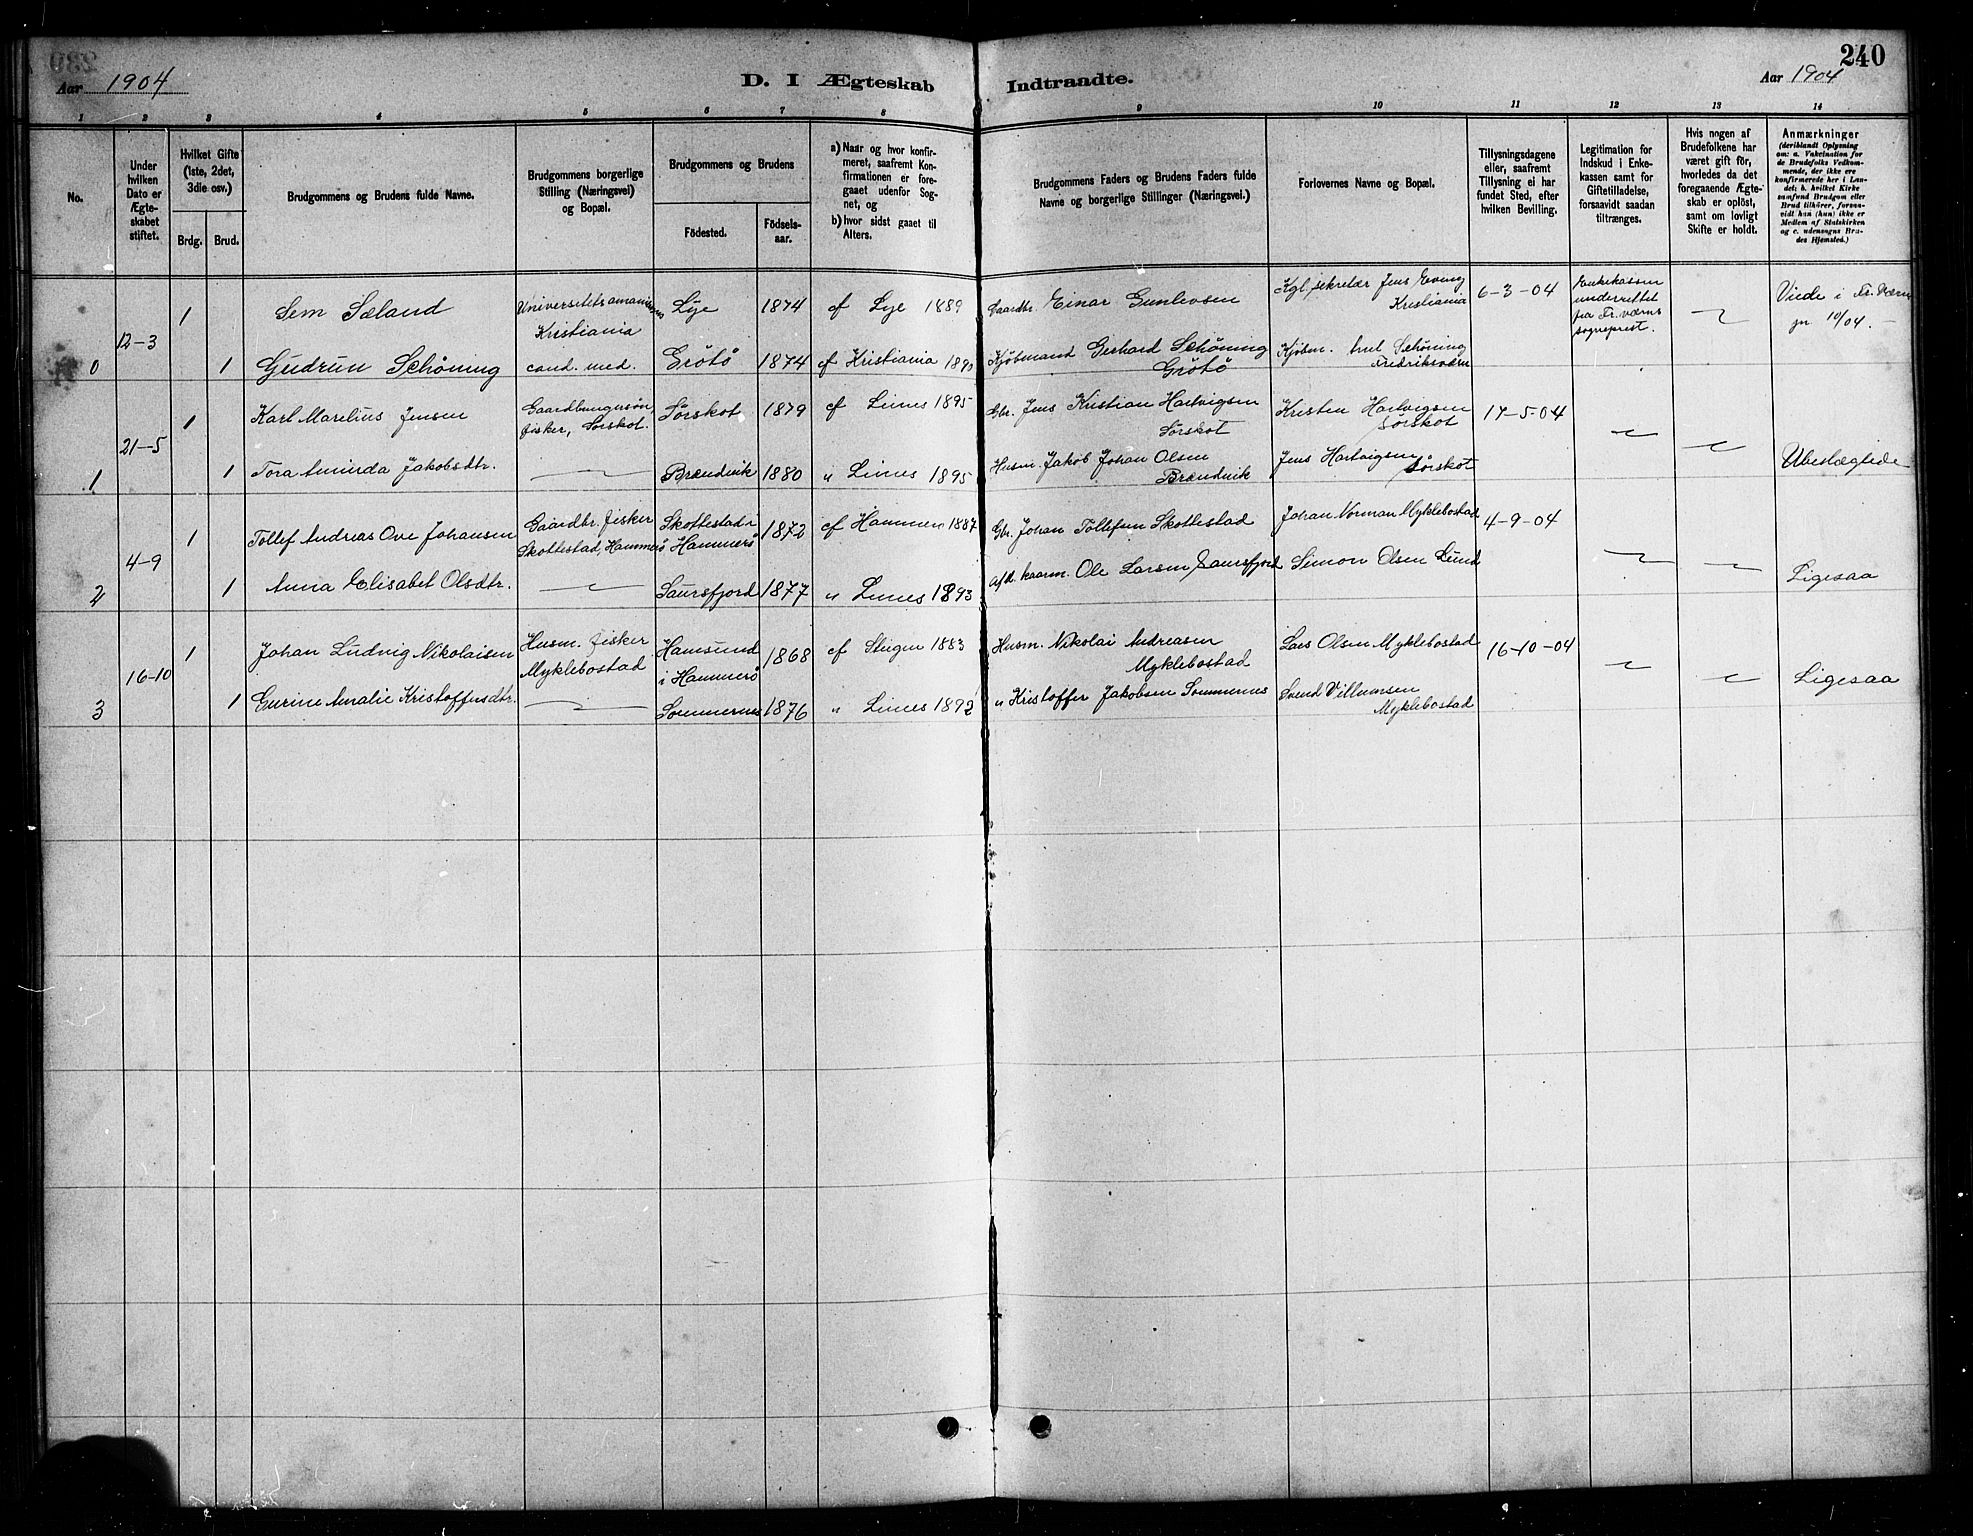 240
Aar 1904
D. I Ægteskab Indtraadte.
Aar 1904
1 2 3 4 5 6 7 8 9 10 11 12 13 14
No.
Under hvilken Dato er Ægteskabet stiftet.
Hvilket Gifte (1ste, 2det, 3die osv.)
Brdg. Brud.
Brudgommens og Brudens fulde Navne.
Brudgommens borgerlige Stilling (Næringsvei) og Bopæl.
Brudgommens og Brudens
Födested.
Födsels-aar.
a) Naar og hvor konfirmeret, saafremt Konfirmationen er foregaaet udenfor Sognet, og
b) hvor sidst gaaet til Alters.
Brudgommens Faders og Brudens Faders fulde Navne og borgerlige Stillinger (Næringsvei.)
Forlovernes Navne og Bopæl.
Tillysningsdagene eller, saafremt Tillysning ei har fundet Sted, efter hvilken Bevilling.
Legitimation for Indskud i Enkekassen samt for Giftetilladelse, forsaavidt saadan tiltrænges.
Hvis nogen af Brudefolkene har været gift för, hvorledes da det foregaaende Ægteskab er oplöst, samt om lovligt Skifte er holdt.
Anmærkninger
(deriblandt Oplysning om: a. Vakcination for de Brudefolks Vedkommende, der ikke ere konfirmerede her i Landet; b. hvilket Kirkesamfund Brudgom eller Brud tilhörer, forsaavidt han (hun) ikke er Medlem af Statskirken og c. udensogns Brudes Hjemsted.)
0 12-3 1 Sem Sæland Universitetsamanuensis Kristiania Lye 1874 cf Lye 1889 Gaardbr. Einar Gunlevsen Kgl. sekretær Jens Kristiania 6-3-04 Enkekassen underrettet fra Fr.værns sogneprest. Viede i Fr.værn 10/04.
1 Gudrun Schöning cand. med. Grötö 1874 cf Kristiania 1890 Kjöbmand Gerhard Schöning Grötö Kjöbm. Schöning Fredriksværn
1 21-5 1 Karl Marelius Jensen Gaardbrugersön, fisker, Sörskot. Sörskot 1879 cf Leines 1895 Gbr. Jens Kristian Hartvigsen Sörskot Kristen Hartvigsen Sörskot 17-5-04
1 Tora Aminda Jakobsdtr. Brændvik 1880 " Leines 1895 Husm. Jakob Johan Olsen Brændvik Jens Hartvigsen Sörskot Ubeslægtede
2 4-9 1 Tollef Andreas Ove Johansen Gaardbr. fisker Skottestad, Hammerö Skottestad i Hammerö 1872 cf Hammerö 1887 Gbr. Johan Tollefsen Skottestad Johan Norman Myklebostad 4-9-04
1 Anna Elisabet Olsdtr. Saursfjord 1877 " Leines 1893 afd. kaarm. Ole Larsen Saursfjord Simon Olsen Lund Ligesaa
3 16-10 1 Johan Ludvig Nikolaisen Husm. fisker Myklebostad Hamsund i Hammerö 1868 cf Steigen 1883 Husm. Nikolai Andreasen Myklebostad Lars Olsen Myklebostad 16-10-04
1 Gurine Amalie Kristoffersdtr. Sommernes 1876 " Leines 1892 " Kristoffer Jakobsen Sommernes Svend Villumsen Myklebostad Ligesaa